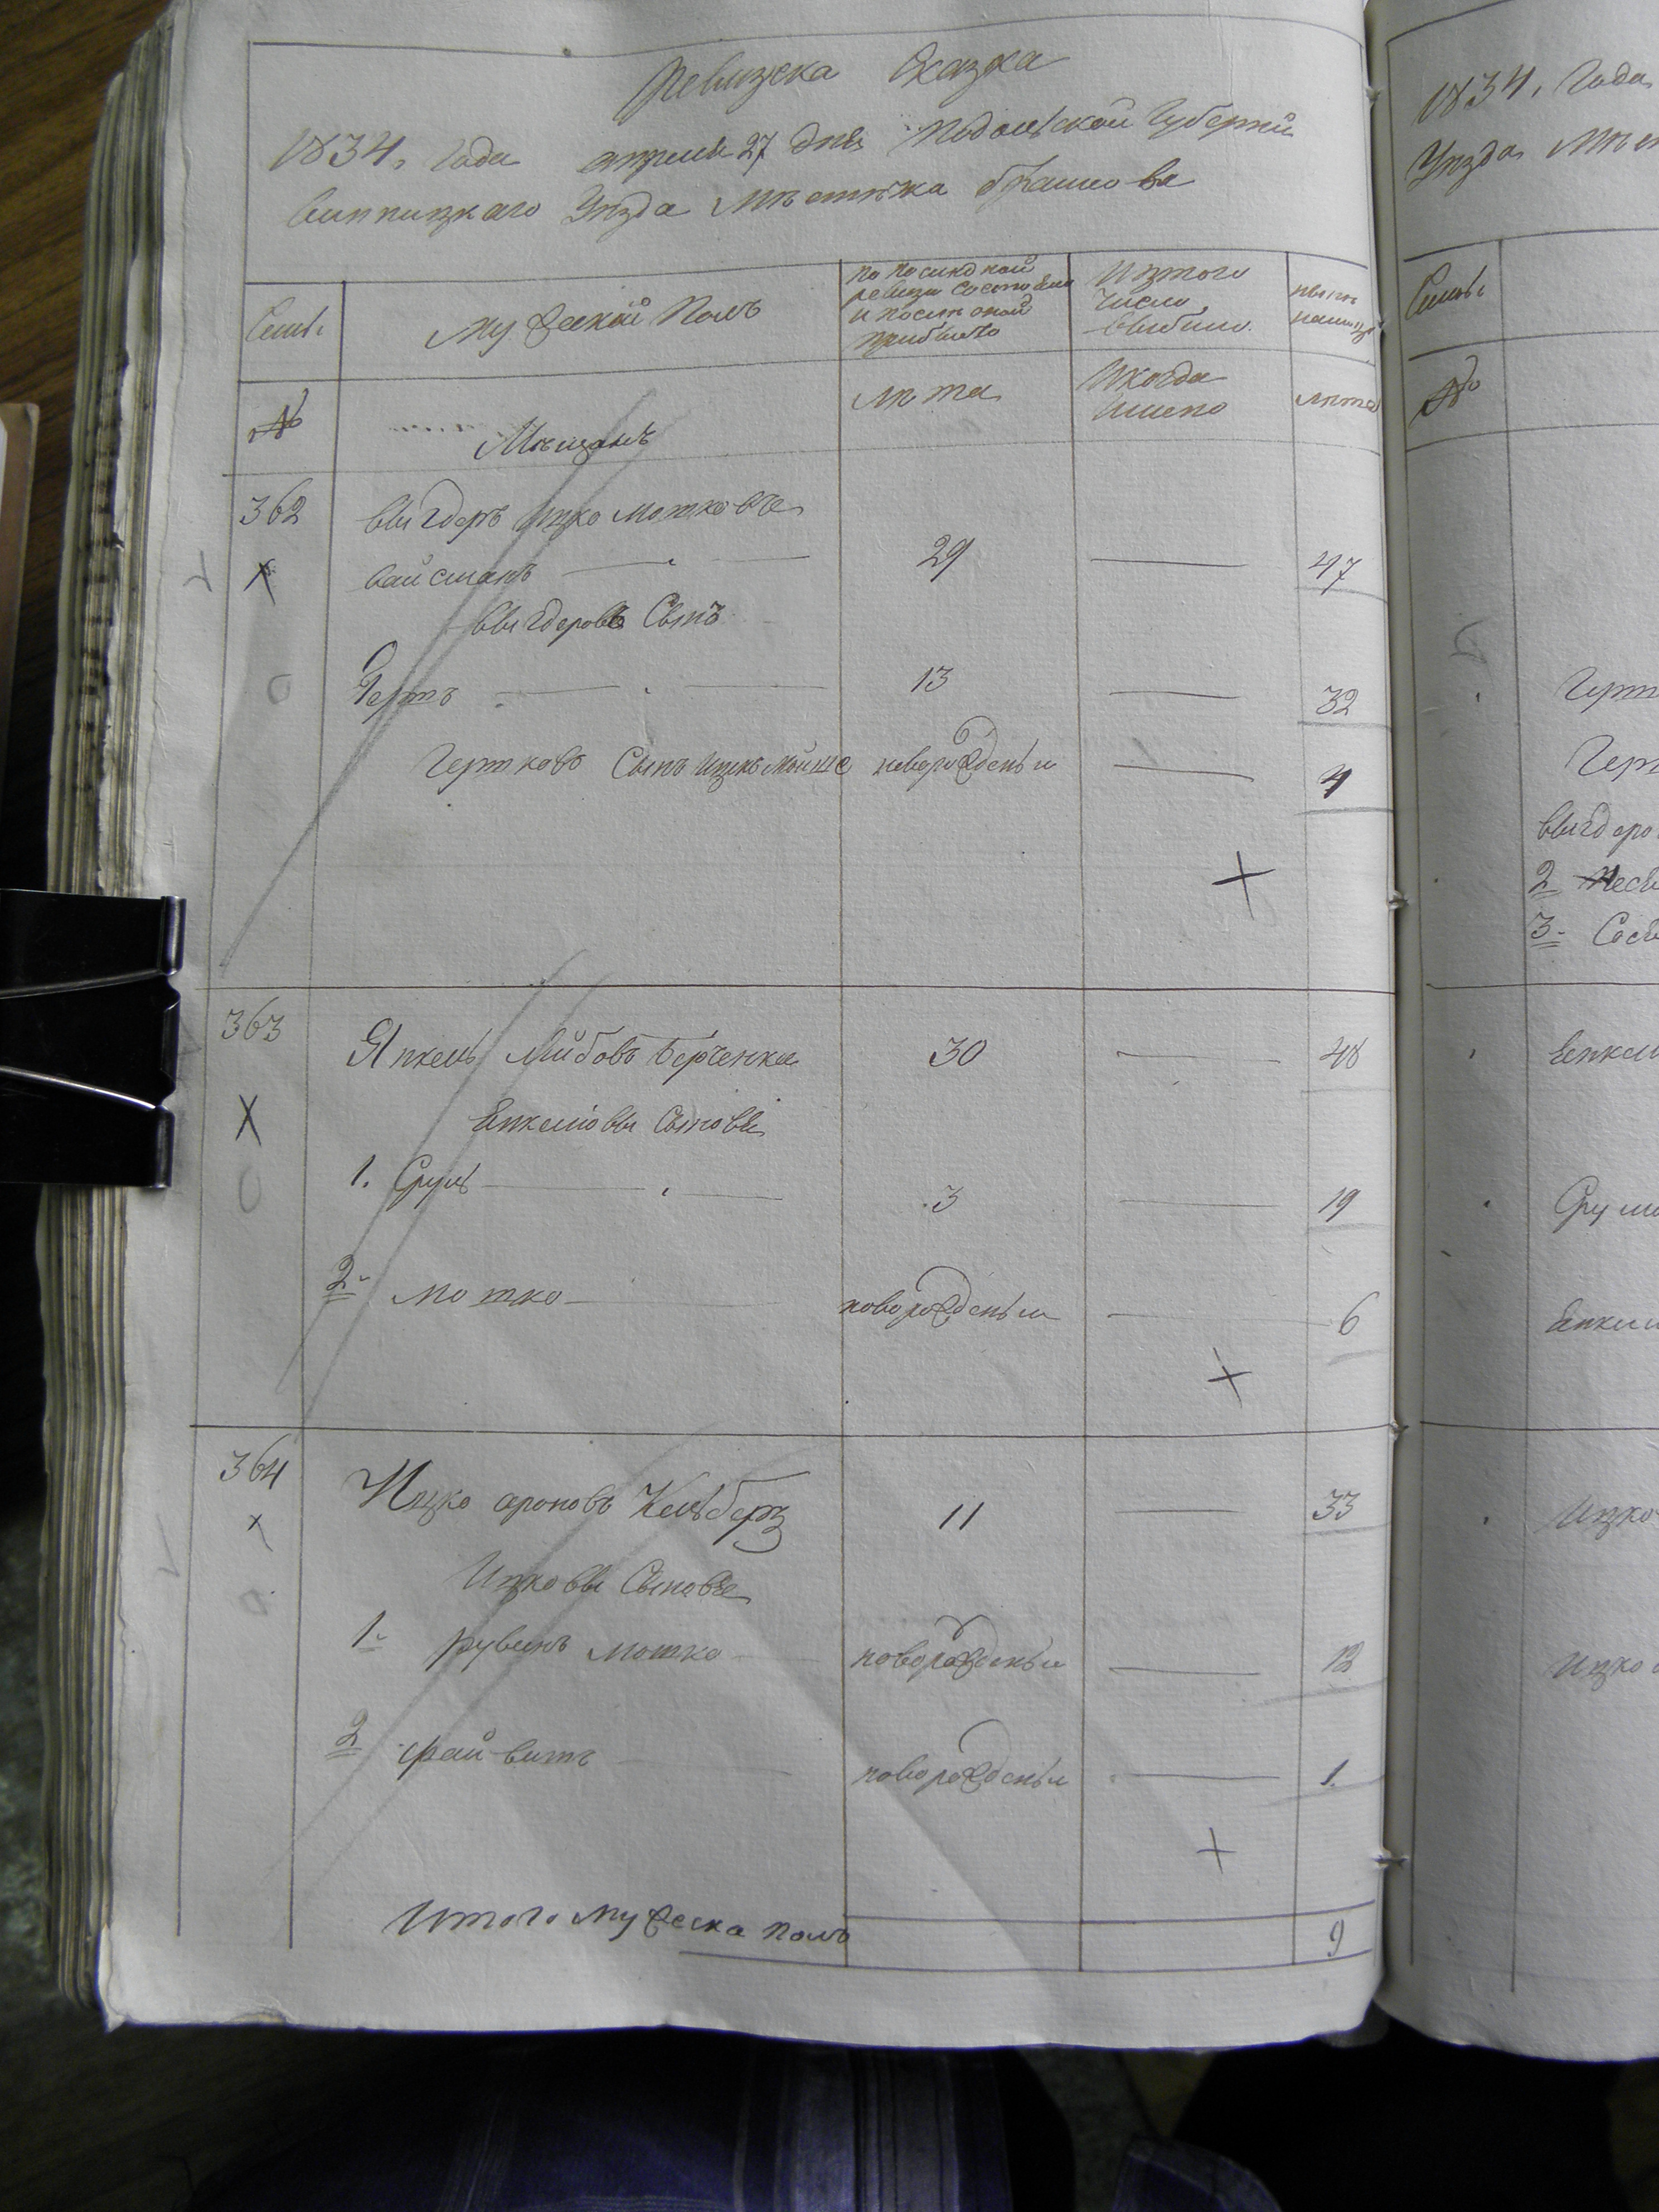 Ревизска Сказка
1834. года апреля 27 дня Подольской Губернии
Винницкаго Уезда Местечка Браилова
Семьи
Мужеский Полъ
По последней
ревизи состояло
и после оной
прибыло
Изтого
число
выбыло
ныне
налицо
№
Мещанъ
лета
Икогда
имено
лета
362
Выгдеръ Ицко Мотковъ
Вайсманъ 29 47
Выгдеровъ Сынъ
Герть 13 32
Гертковъ Сынъ Ицкъ Мойше новорожденый 4
363
Янкель Лейбовъ Берченка 30 48
Янкелювы Сыновья
1. Сруль 3 19
2. Мотко новорожденый 6
364
Ицко ароновъ Кельберз 11 33
Ицковы Сыновья
1. Рувинъ Мотко новорожденый 12
2 Файвишъ новорожденый 1.
Итого Мужеска Полъ 9
1834. Года
Уезда Месте
Семьи
№
Герт
Герт
Выгдеро
2
3. Сос
Янкел
Срулю
Янкел
Ицко
Ицко